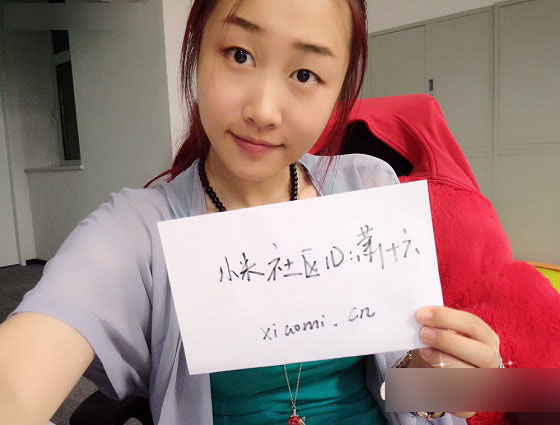 小米社区ID:萧十六
xiaomi.cn